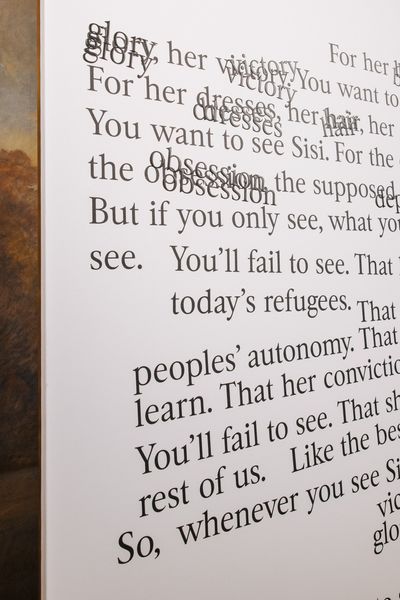 glory, her victory. For her
glory victory. You want to
For her dresses, her hair, her
dresses hair
You want to see Sisi. For the
obsession
the obsession, the supposed
obsession
But if you only see, what you
see. You'll fail to see. That
today's refugees. That
peoples' autonomy. That
learn. That her convictio
You'll fail to see. That sh
rest of us. Like the bes
So, whenever you see Si
vic
glo